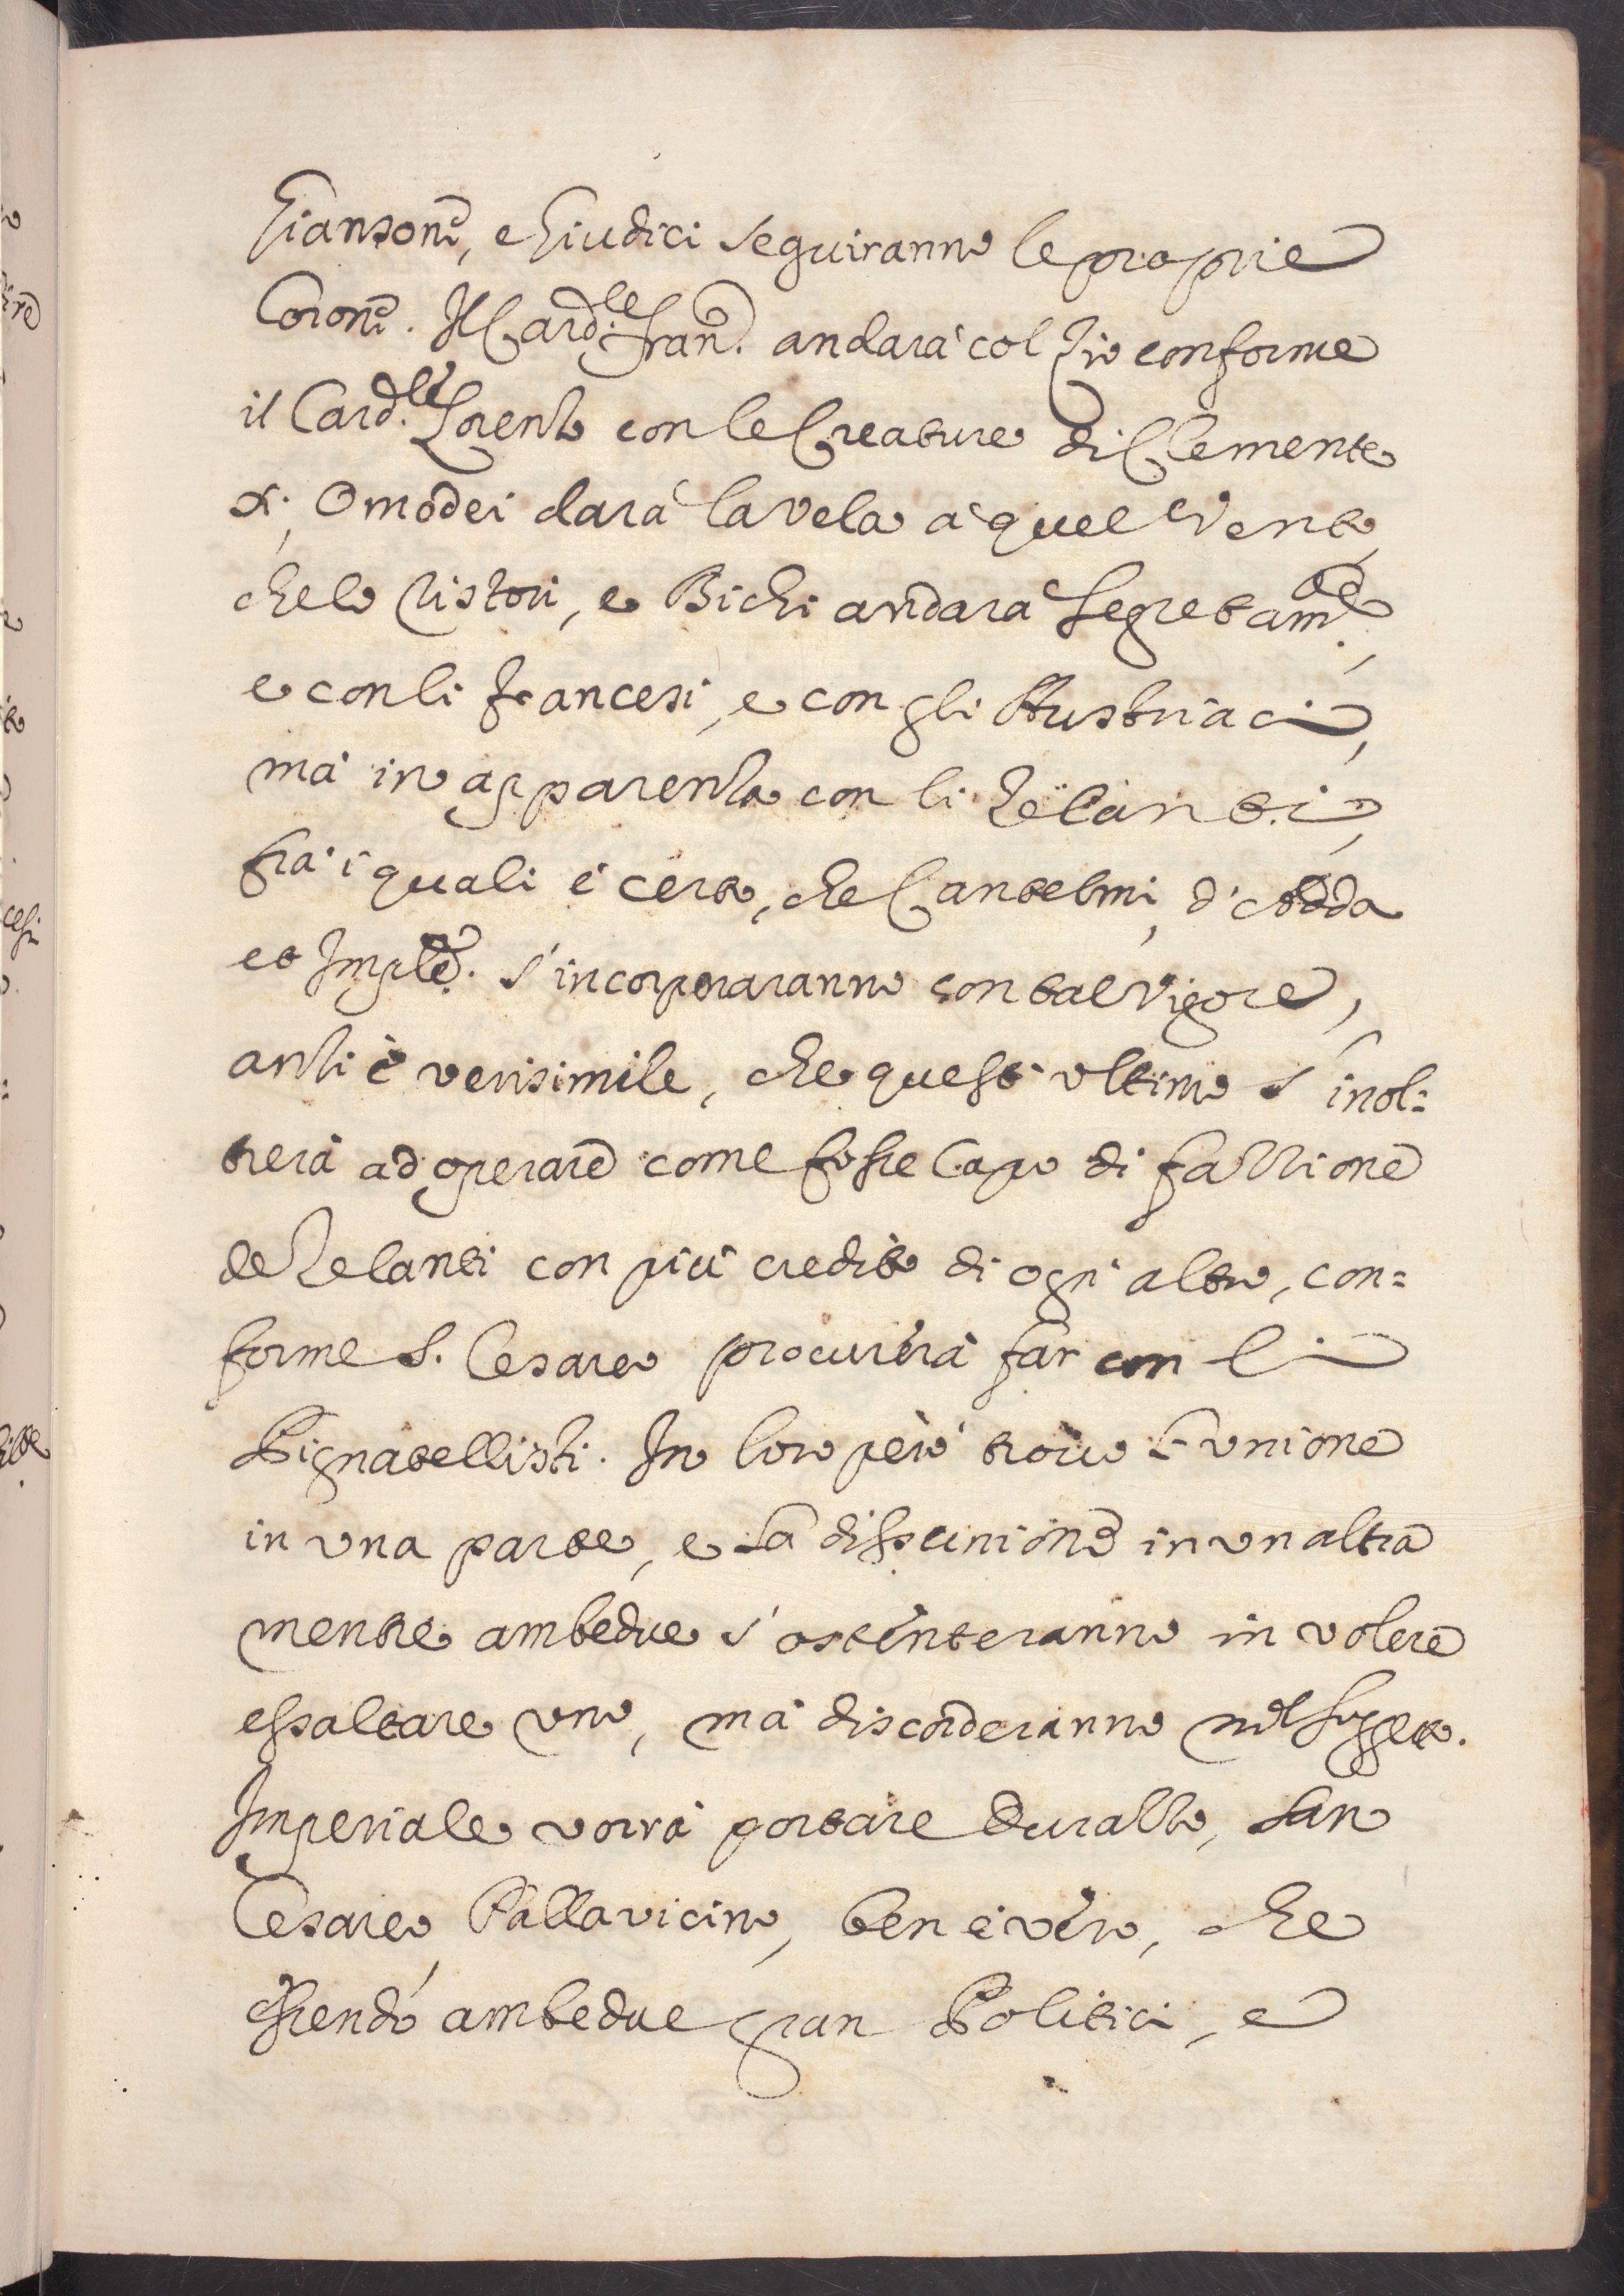 Giansone, e Giudici seguiranno le proprie
Corone. Il Card.le Fran.o andarà col Zio conforme
il Card.le Lorenzo con le Creature di Clemente
X; Omodei darà la vela à quel Vento,
che lo ristori, e Bichi andarà segretam.te,
e con li Francesi, e con gli Austriaci,
mà in apparenza con li Zelanti,
frà i quali è certo, che Cantelmi, d'Adda
et Imp.le s'incorporaranno con tal vigore,
anzi è verisimile, che quest'ultimo s'inol=
trerà ad operare come fosse Capo di fazzione
de Zelanti con più credito di ogn'altro, con=
forme S. Cesareo procurerà far con li
Pignatellisti. In loro però trovo l'unione
in una parte, e la dissunione in un altra
mentre ambedue s'ostenteranno in volere
essaltare uno, mà discorderanno nel sogget.o.
Imperiale vorrà portare Durazzo, San
Cesareo Pallavicino, ben è vero, che
essendo ambedue gran Politici, e